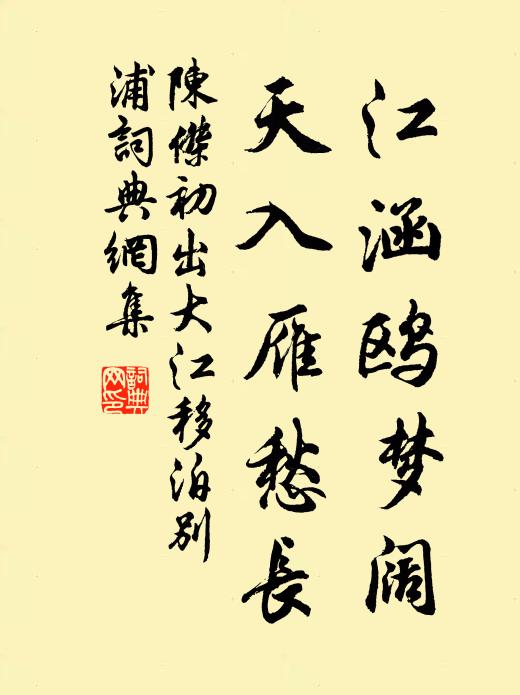 江涵鸥梦阔
天入雁愁長
陳傑初出大江移泊别
浦詞典網集
詞典
网印